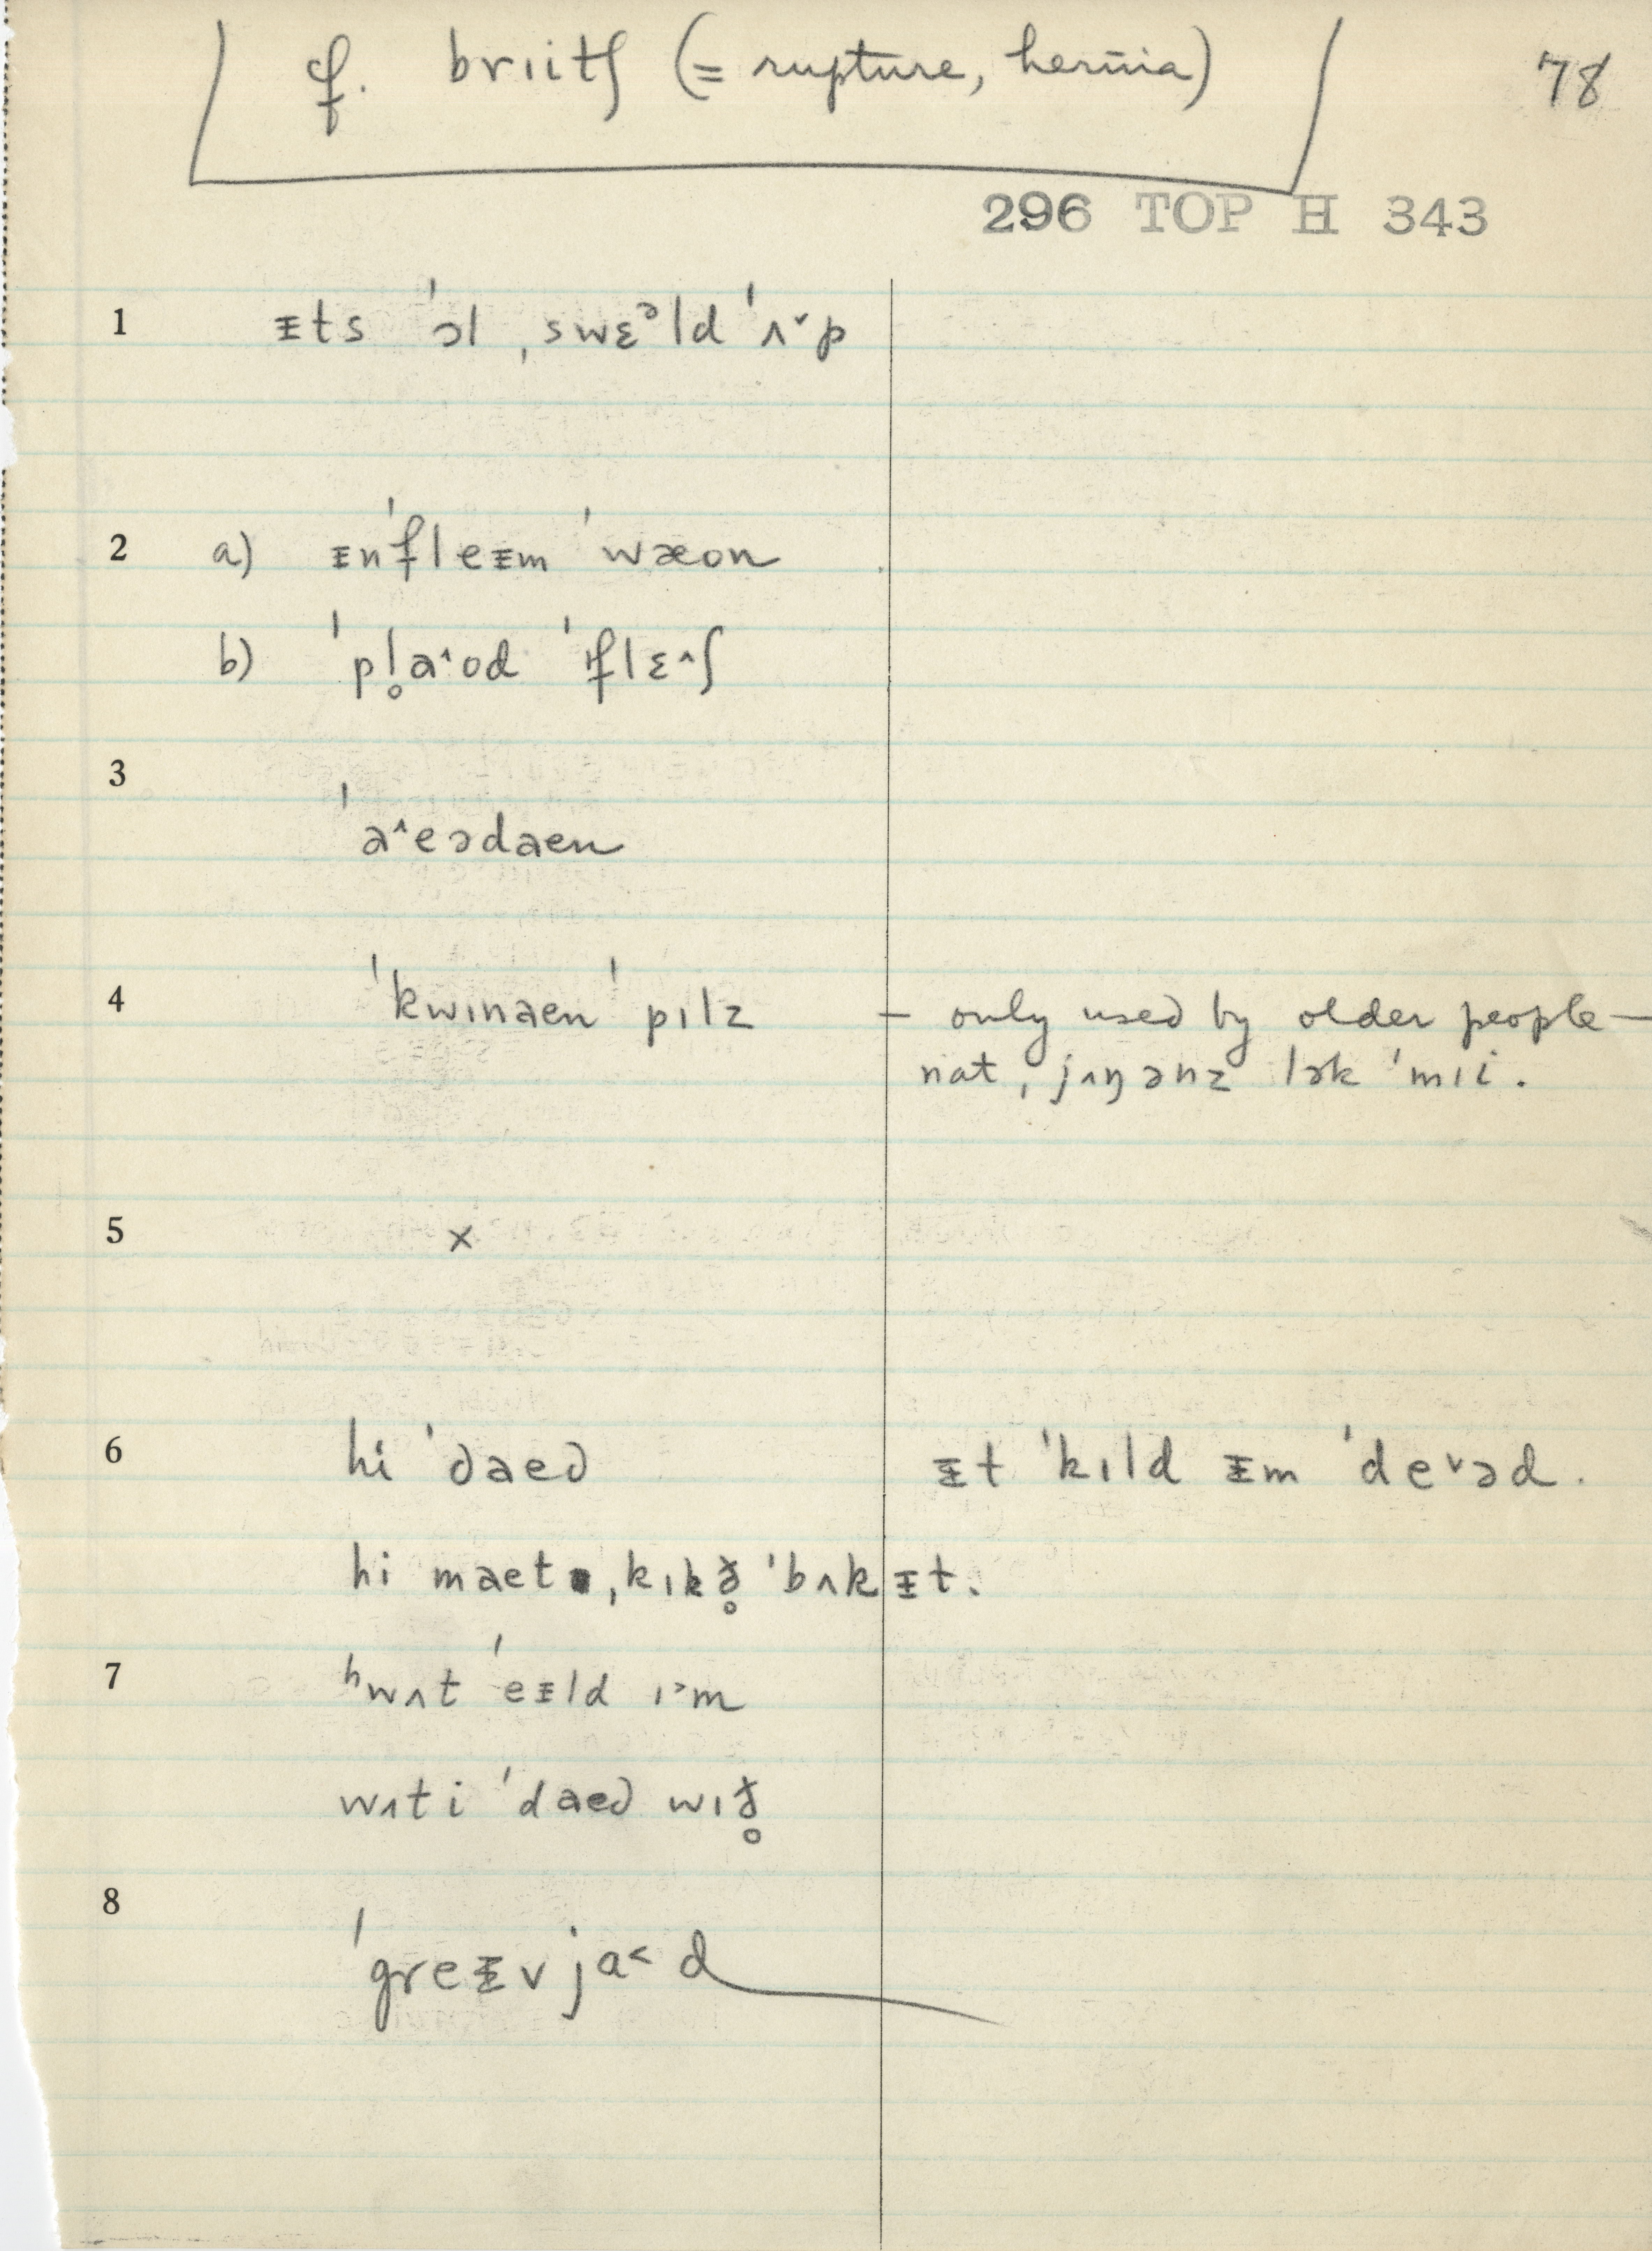 cf. brɪitʃ (= rupture, hernia)
78
296 TOP H 343
1 ᵻts ˈɔl ˌswɛᵊld ˈʌ˅p
2 a) ᵻnˈfleᵻm ˈwæon
b) ˈpl̥a˄od ˈflɛ˄ʃ
3
ˈa˄eədaen
4 ˈkwɪnaen ˈpɪlz – only used by older people –
nat ˌjʌŋənz lək ˈmɪi.
5 x
6 hi ˈdaed ᵻt ˈkɪld ᵻm ˈde˅əd.
hi maet ˌkɪkð̥ ˈbʌkᵻt.
7 ʰwʌt ˈeᵻld ɪ˃m
wʌt i ˈdaed wɪð̥
8
ˈgreᵻvja˂d